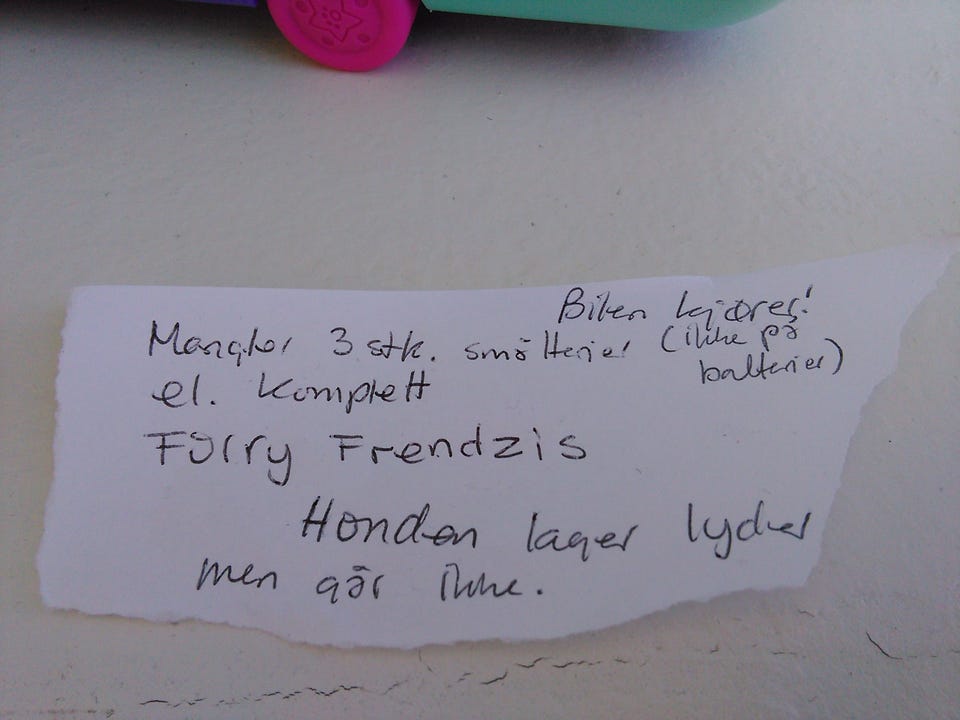 Bilen kjøres!
(ikke på
batterier)
Mangler 3 stk. små tterier
el. komplett
Furry Frendzis
Hunden lager lyder
men går ikke.